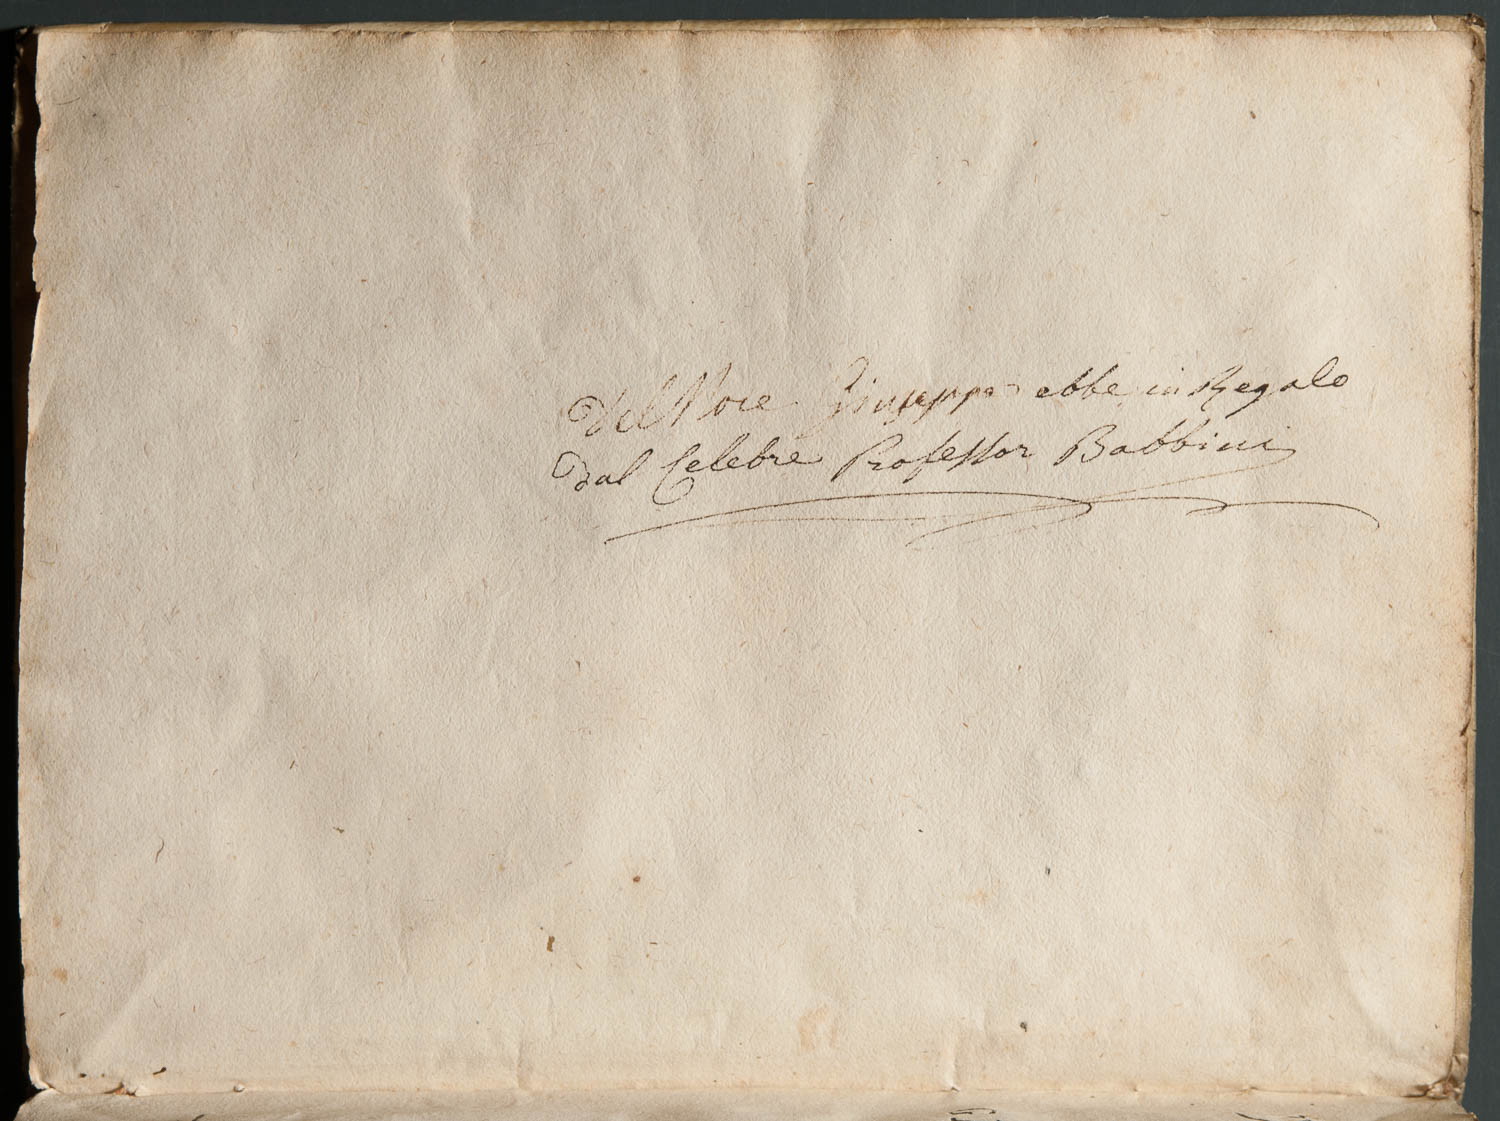 Del Noce Giuseppe ebbe in Regalo
dal Celebre Professor Babbini